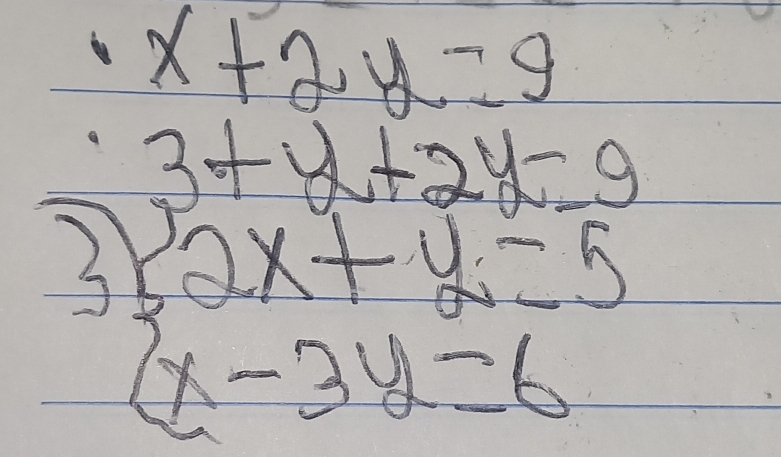 • x + 2y = 9
• 3 + y + 2y = 9
3) { 2x + y = 5
x - 3y = 6